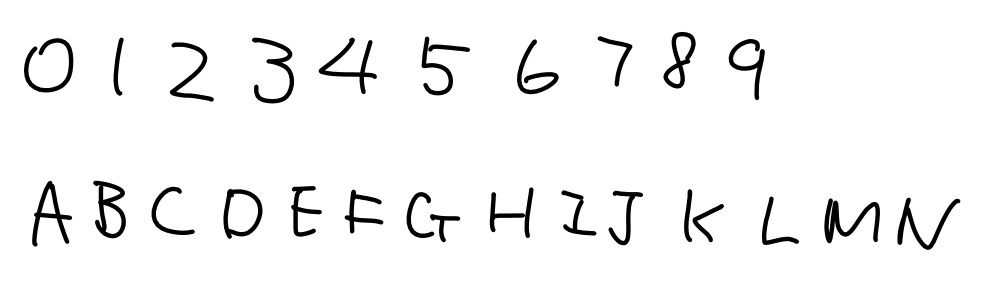 0 1 2 3 4 5 6 7 8 9
A B C D E F G H I J K L M N